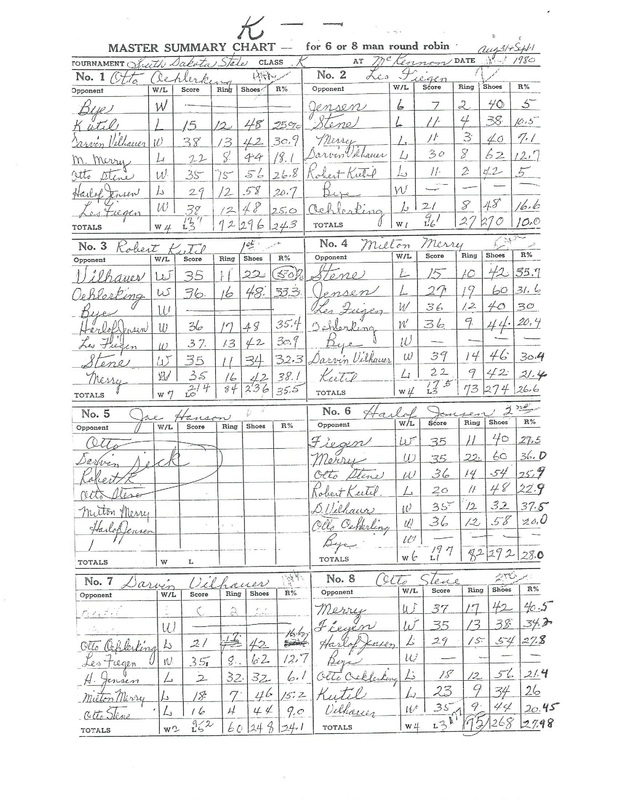 K — —
MASTER SUMMARY CHART — for 6 or 8 man round robin Aug 31 + Sept 1
TOURNAMENT South Dakota State CLASS K AT McKennon DATE 1980
No. 1 Otto Oehlerking
Opponent W/L Score Ring Shoes R%
Bye W — — — —
Kutil L 15 12 48 25%
Darvin Vilhauer W 38 13 42 30.9
M. Merry L 22 8 44 18.1
Otto Stene W 35 15 56 26.8
Harlof Jensen L 29 12 58 20.7
Les Fiegen W 38 12 48 25.0
TOTALS W 4 L 3 177 72 296 24.3
No. 2 Les Fiegen
Opponent W/L Score Ring Shoes R%
Jensen L 7 2 40 5
Stene L 11 4 38 10.5
Merry L 11 3 40 7.1
Darvin Vilhauer L 30 8 62 12.7
Robert Kutil L 11 2 42 5
Bye W — — — —
Oehlerking L 21 8 48 16.6
TOTALS W 1 L 6 91 27 270 10.0
No. 3 Robert Kutil 1st
Opponent W/L Score Ring Shoes R%
Vilhauer W 35 11 22 50%
Oehlerking W 36 16 48 33.3
Bye W — — —
Harlof Jensen W 36 17 48 35.4
Les Fiegen W 37 13 42 30.9
Stene W 35 11 34 32.3
Merry W 35 16 42 38.1
TOTALS W 7 L 0 214 84 236 35.5
No. 4 Milton Merry
Opponent W/L Score Ring Shoes R%
Stene L 15 10 42 35.7
Jensen L 27 19 60 31.6
Les Fiegen W 36 12 40 30
Oehlerking W 36 9 44 20.4
Bye W — — — —
Darvin Vilhauer W 39 14 46 30.4
Kutil L 22 9 42 21.4
TOTALS W 4 L 3 175 73 274 26.6
No. 5 Joe Hanson
Opponent W/L Score Ring Shoes R%
Otto
Darvin Sick
Robert K
Otto Stene
Milton Merry
Harlof Jensen
TOTALS W L
No. 6 Harlof Jensen 2nd
Opponent W/L Score Ring Shoes R%
Fiegen W 35 11 40 27.5
Merry W 35 22 60 36.0
Otto Stene W 36 14 54 25.9
Robert Kutil L 20 11 48 22.9
D. Vilhauer W 35 12 32 37.5
Otto Oehlerking W 36 12 58 20.0
Bye W — — — —
TOTALS W 6 L 1 197 82 292 28.0
No. 7 Darvin Vilhauer
Opponent W/L Score Ring Shoes R%
W — — — —
Otto Oehlerking L 21 42 16.6
Les Fiegen W 35 8 62 12.7
H. Jensen L 2 32 32 6.1
Milton Merry L 18 7 46 15.2
Otto Stene L 16 4 44 9.0
TOTALS W 2 L 5 60 248 24.1
No. 8 Otto Stene
Opponent W/L Score Ring Shoes R%
Merry W 37 17 42 40.5
Fiegen W 35 13 38 34.2
Harlof Jensen L 29 15 54 27.8
Bye W — — —
Otto Oehlerking L 18 12 56 21.4
Kutil L 23 9 34 26
Vilhauer W 35 9 44 20.45
TOTALS W 4 L 3 177 75 268 27.98